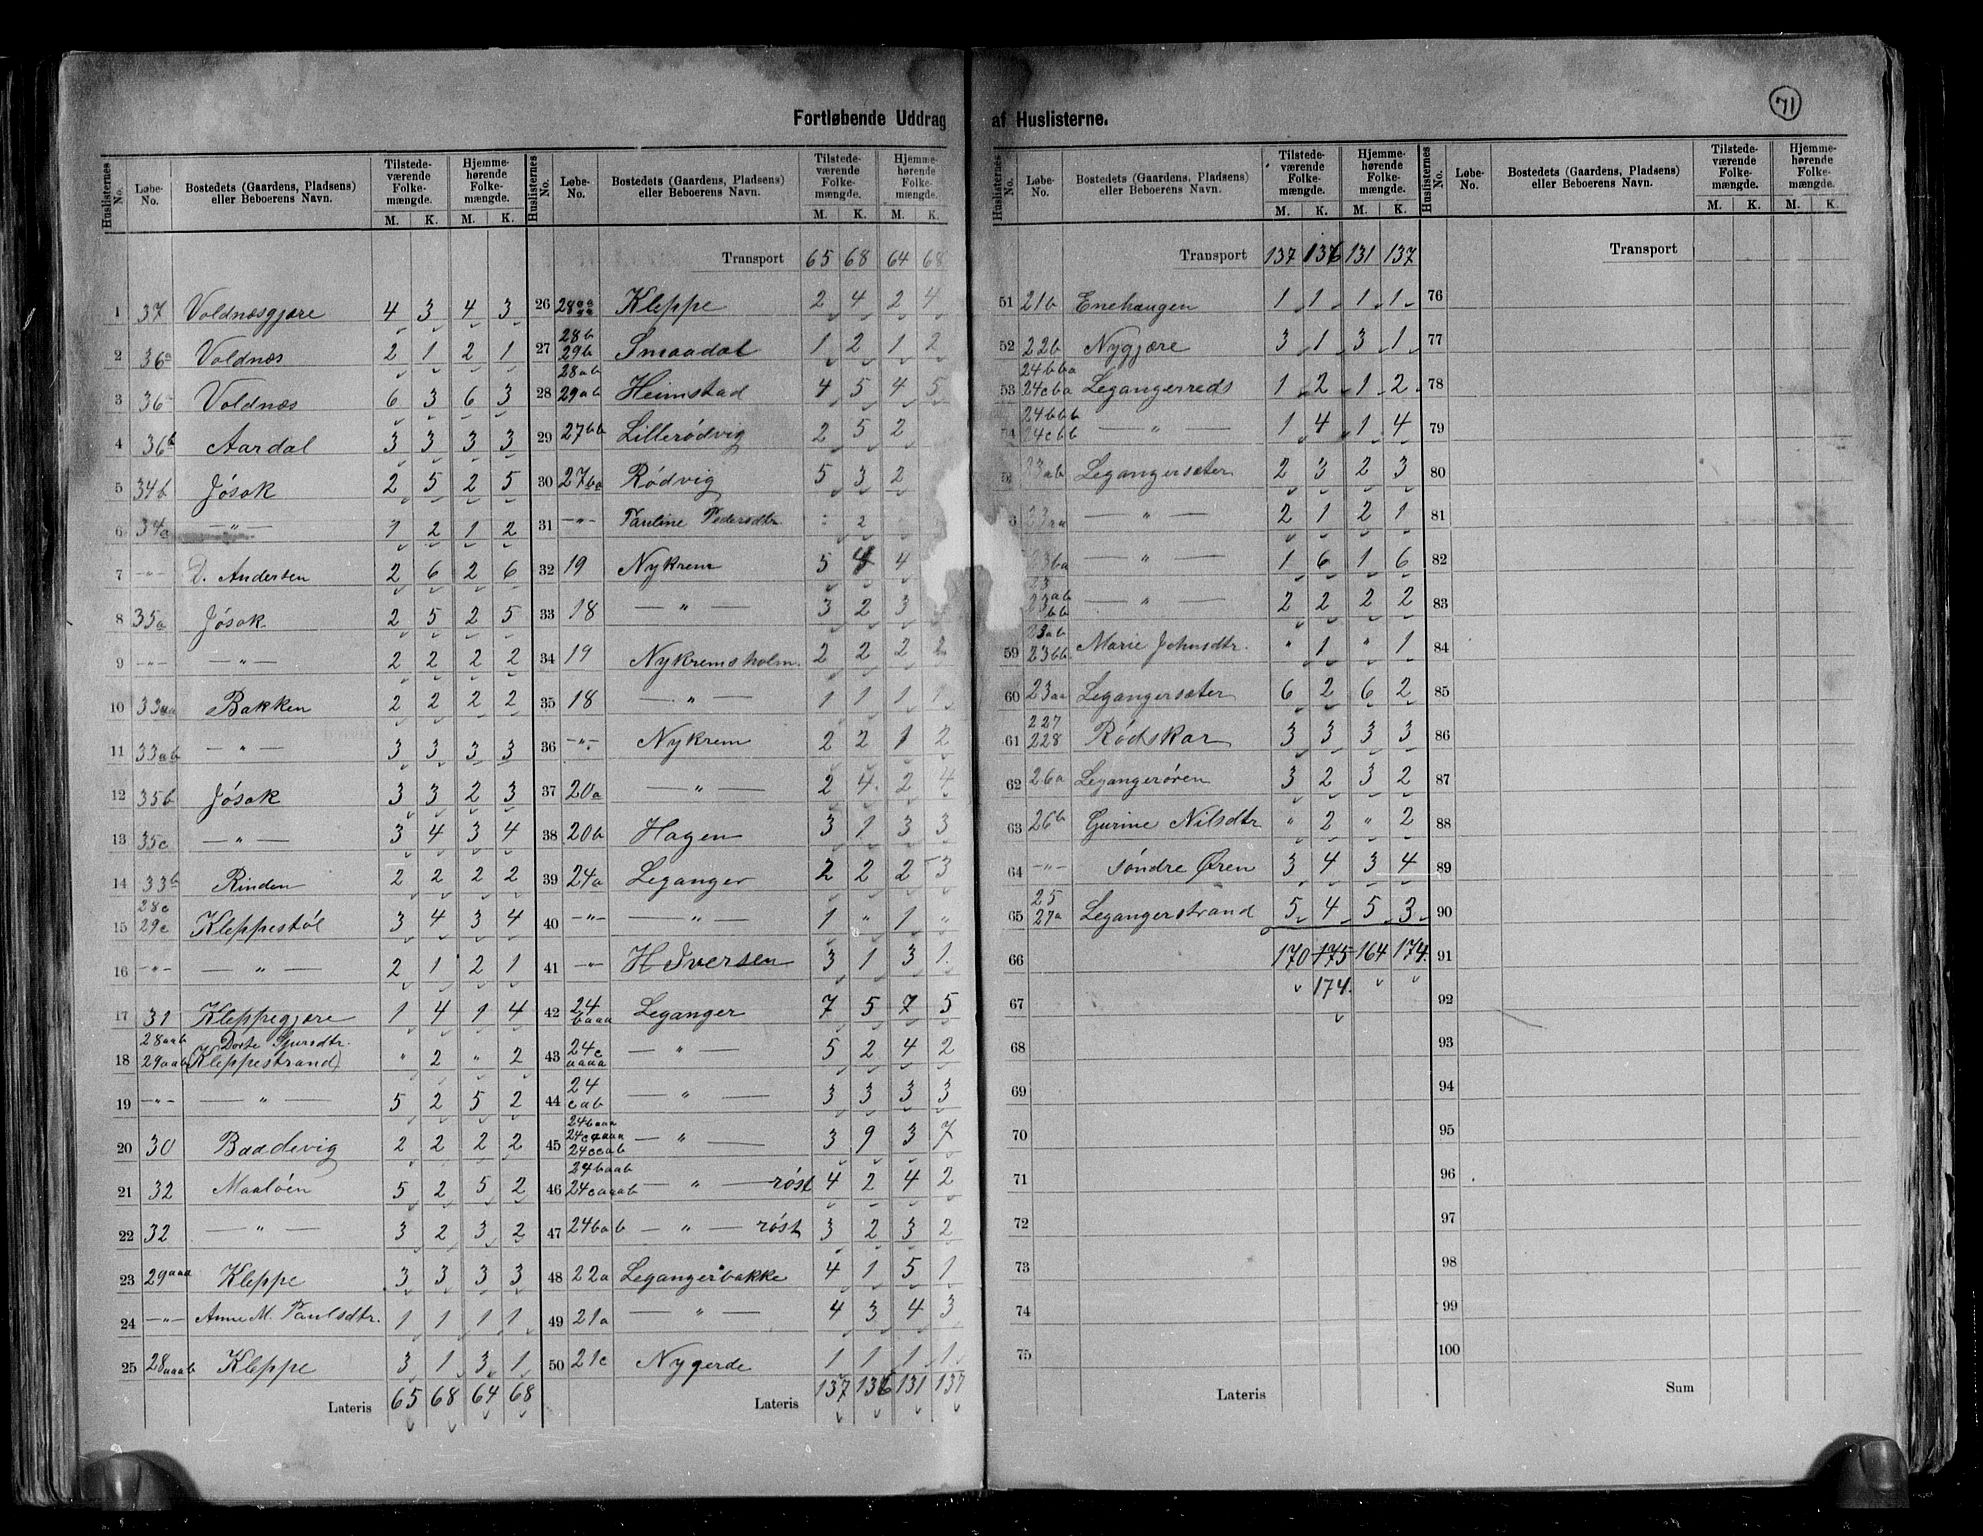 71
Fortløbende Uddrag af Huslisterne.
Huslisternes No. Løbe-No. Bostedets (Gaardens, Pladsens) eller Beboerens Navn. Tilstedeværende Folkemængde. M. K. Hjemmehørende Folkemængde. M. K.
1 37 Voldnæsgjøre 4 3 4 3
2 36a Voldnæs 2 1 2 1
3 36 Voldnæs 6 3 6 3
4 36b Aardal 3 3 3 3
5 34b Jøsok 2 5 2 5
6 34a — " — 1 2 1 2
7 -"- Andersen 2 6 2 6
8 35a Jøsok 2 5 2 5
9 -"- — " — 2 2 2 2
10 33aa Bakken 2 2 2 2
11 33ab — " — 3 3 3 3
12 35b Jøsok 3 3 2 3
13 35c — " — 3 4 3 4
14 33b Rinden 2 2 2 2
15 28c 29c Kleppestøl 3 4 3 4
16 -"- — " — 2 1 2 1
17 31 Kleppegjøre 1 4 1 4
18 28aab 29aab Dorte Sjursdtr. (Kleppestrand) " 2 " 2
19 -"- — " — 5 2 5 2
20 30 Baadevig 2 2 2 2
21 32 Maaløen 5 2 5 2
22 32 — " — 3 2 3 2
23 29aaa Kleppe 3 3 3 3
24 -"- Anne M. Paulsdtr. 1 1 1 1
25 28aaab Kleppe 3 1 3 1
Lateris 65 68 64 68
Huslisternes No. Løbe-No. Bostedets (Gaardens, Pladsens) eller Beboerens Navn. Tilstedeværende Folkemængde. M. K. Hjemmehørende Folkemængde. M. K.
Transport 65 68 64 68
26 28aaaa Kleppe 2 4 2 4
27 28b 29b Smaadal 1 2 1 2
28 28ab 29ab Heimstad 4 5 4 5
29 27bb Lillerødvig 2 5 2
30 27ba Rødvig 5 3 2
31 -"- Pauline Pedersdtr : 2
32 19 Nykrem 5 4 4
33 18 — " — 3 2 3
34 19 Nykremsholm 2 2 2 2
35 18 — " — 1 1 1
36 -"- Nykrem 2 2 1 2
37 20a — " — 2 4 2 4
38 20b Hagen 3 1 3 3
39 24a Leganger 2 2 2 3
40 -"- — " — 1 " 1 "
41 -"- H Iversen 3 1 3 1
42 24 baaa Leganger 7 5 7 5
43 24c aaaa — " — 5 2 4 2
44 24 cab — " — 3 3 3 3
45 24baaa 24caaaa 24ccab — " — 3 9 3 7
46 24baab 24caaab — " — røst 4 2 4 2
47 24bab — " — røst 3 2 3 2
48 22a Legangerbakke 4 1 5 1
49 21a — " — 4 3 4 3
50 21c Nygerde 1 1 1 1
Lateris 137 136 131 137
Huslisternes No. Løbe-No. Bostedets (Gaardens, Pladsens) eller Beboerens Navn. Tilstedeværende Folkemængde. M. K. Hjemmehørende Folkemængde. M. K.
Transport 137 136 131 137
51 21b Enehaugen 1 1 1 1
52 22b Nygjøre 3 1 3 1
53 24bba 24cba Legangerreds 1 2 1 2
54 24bbb 24cbb — " — 1 4 1 4
23ab Legangersæter 2 3 2 3
23aa — " — 2 1 2 1
23ba — " — 1 6 1 6
23 23ab bb — " — 2 2 2 2
59 23ab 23bb Marie Johnsdtr. " 1 " 1
60 23aa Legangersæter 6 2 6 2
61 227 228 Rødskar 3 3 3 3
62 26a Legangerøren 3 2 3 2
63 26b Gurine Nilsdtr " 2 " 2
64 -"- Søndre Øren 3 4 3 4
65 25 27a Legangerstrand 5 4 5 3
66 170 175 164 174
67 174.
68
69
70
71
72
73
74
75
Lateris
Huslisternes No. Løbe-No. Bostedets (Gaardens, Pladsens) eller Beboerens Navn. Tilstedeværende Folkemængde. M. K. Hjemmehørende Folkemængde. M. K.
Transport
76
77
78
79
80
81
82
83
84
85
86
87
88
89
90
91
92
93
94
95
96
97
98
99
100
Sum